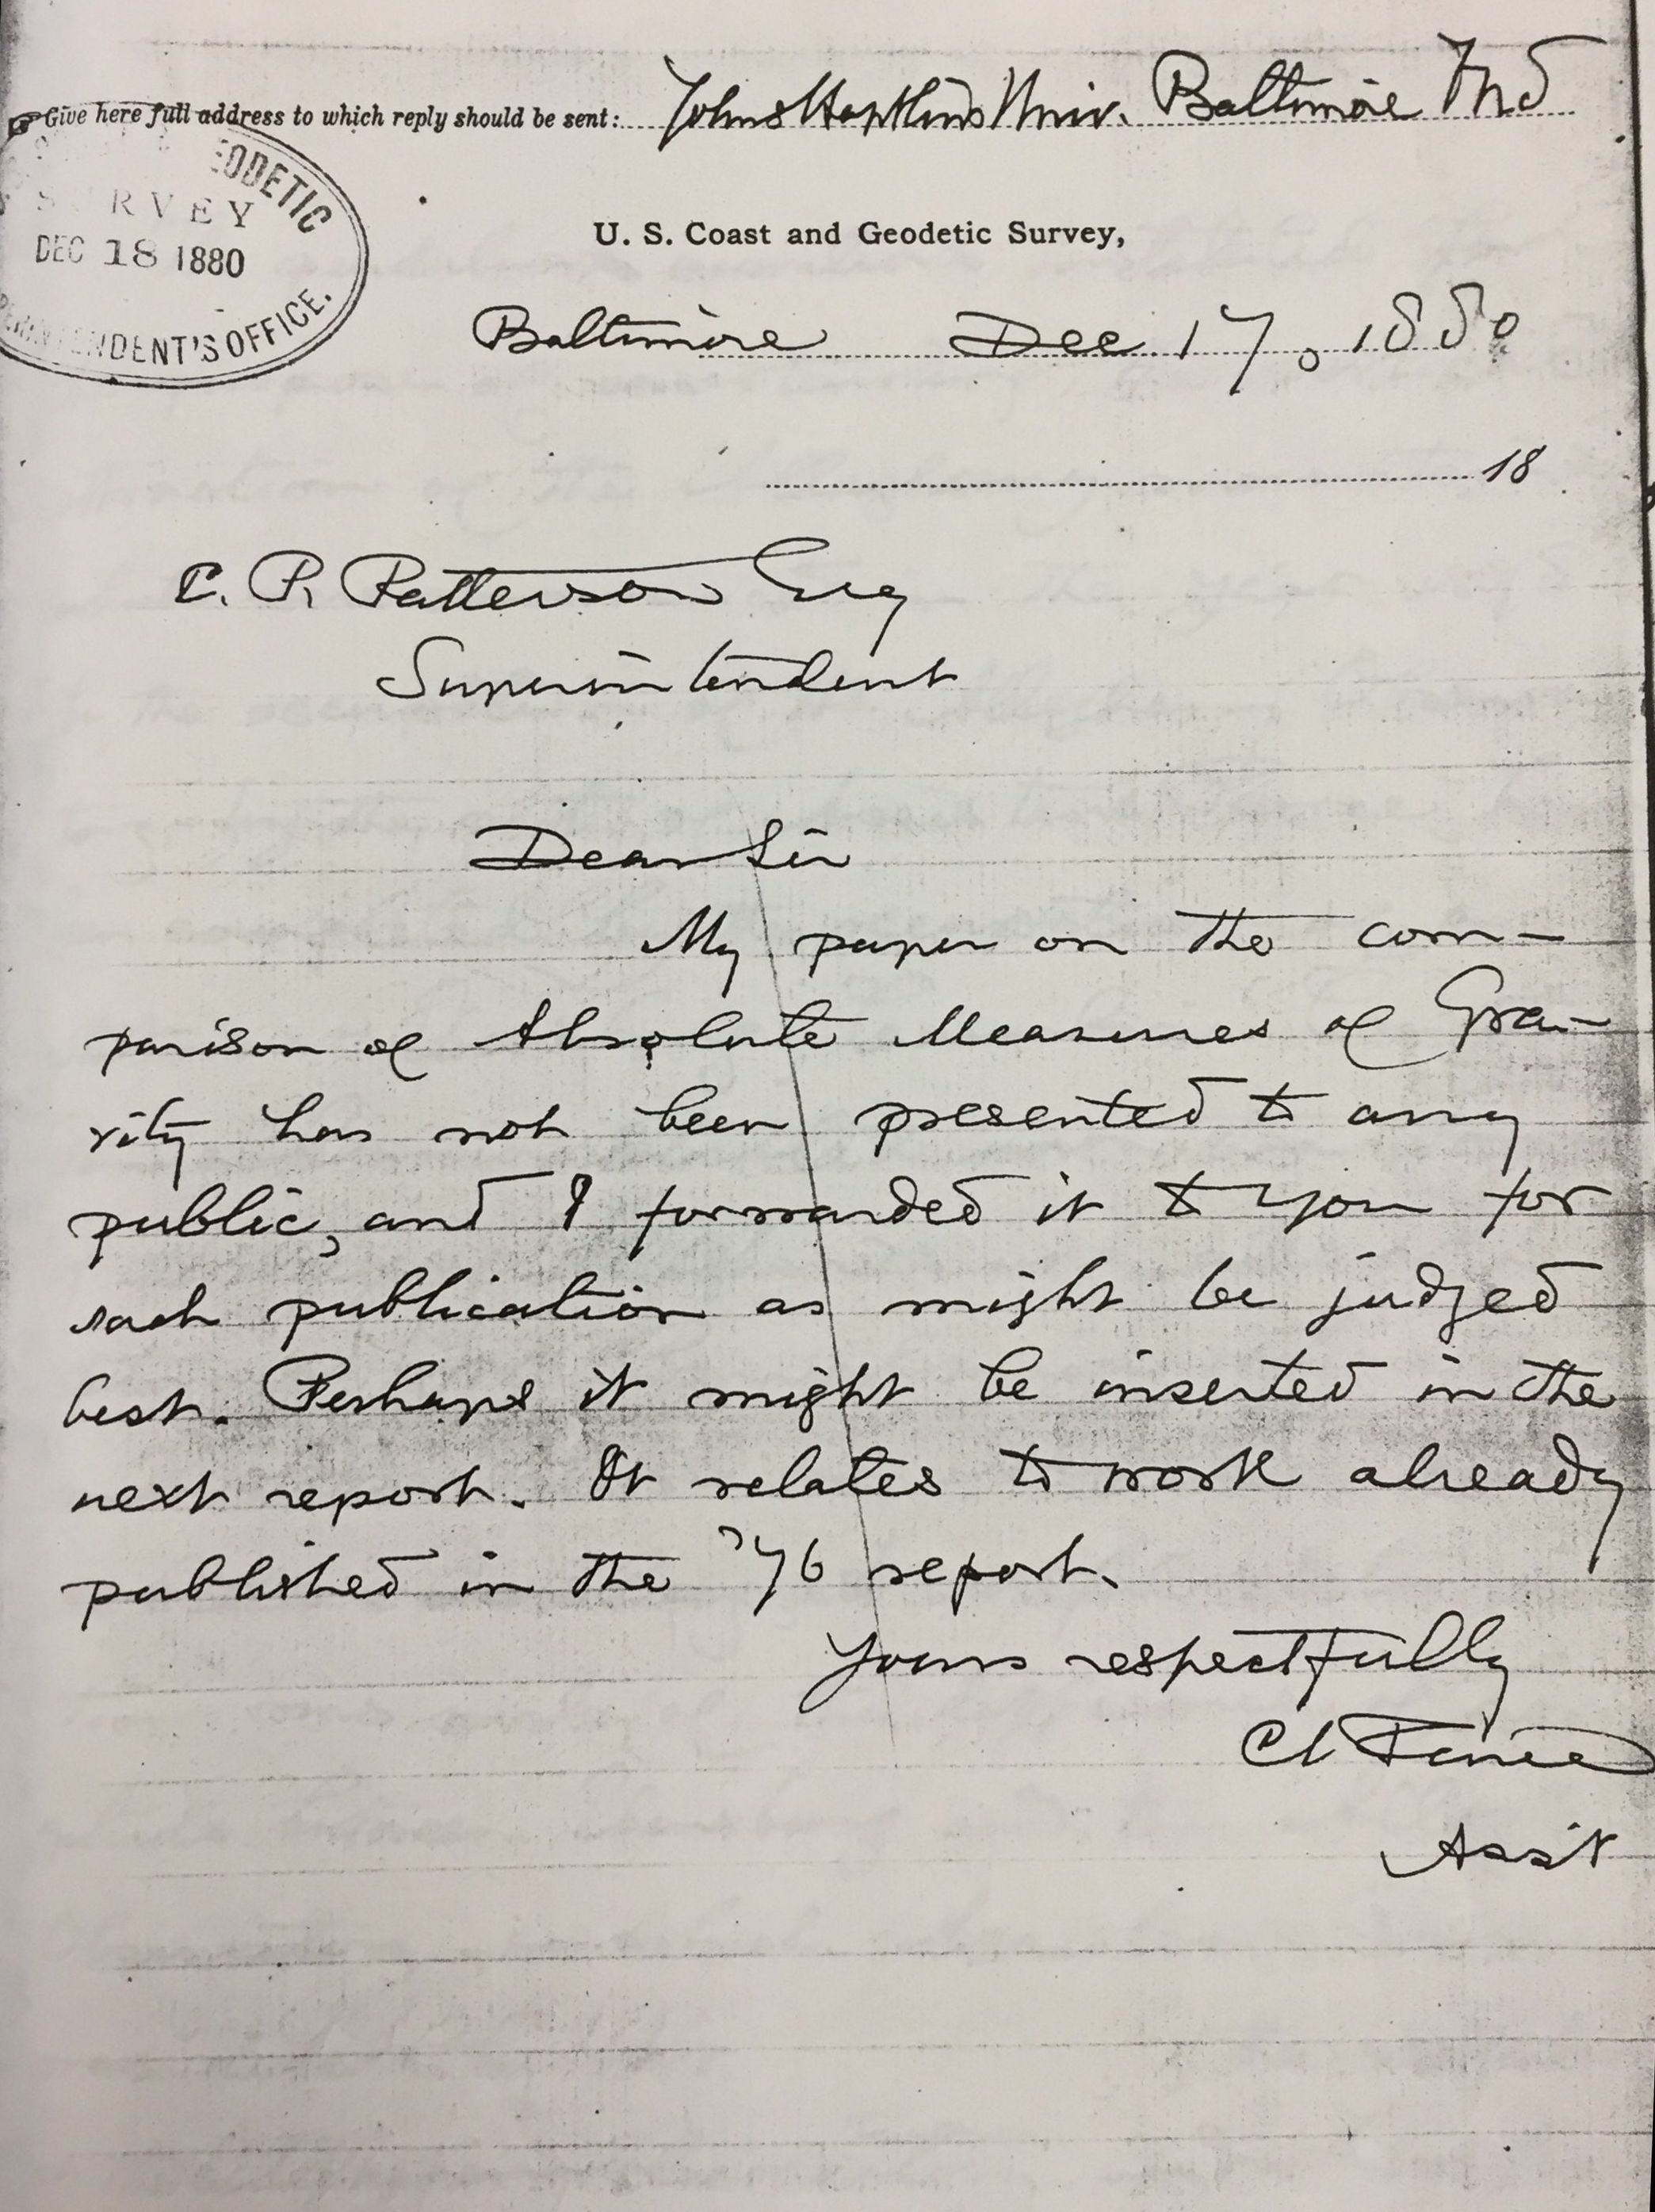 Give here full address to which reply should be sent: Johns Hopkins Univ. Baltimore Md
EODETIC
SURVEY
DEC 18 1880
NDENT'S OFFICE.
U. S. Coast and Geodetic Survey,
Baltimore Dec 17, 1880
18
C. P. Patterson Esq
Superintendent
Dear Sir
My paper on the com-
parison of Absolute Measures of Gra-
vity has not been presented to any
public, and I forwarded it to you for
such publication as might be judged
best. Perhaps it might be inserted in the
next report. It relates to work already
published in the '76 report.
Yours respectfully
C S Peirce
Ass't